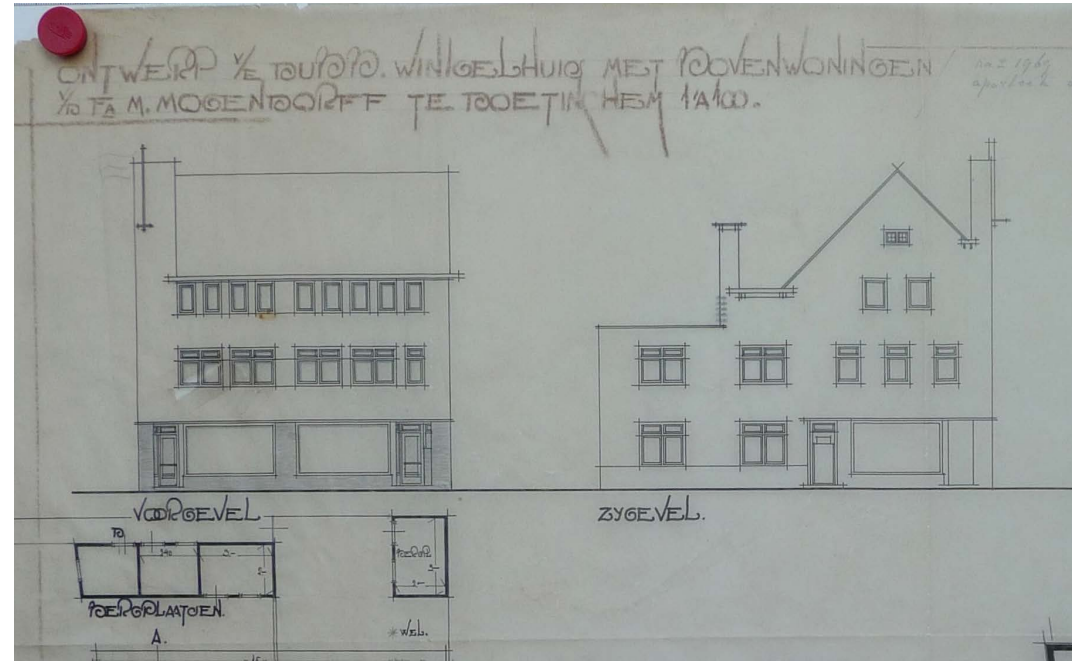 ONTWERP V/E DUBB. WINKELHUIS MET BOVENWONINGEN
V/D FA M. MOGENDORFF TE DOETINCHEM 1 A 100.
na 2 1969
apotheek
VOORGEVEL
ZYGEVEL.
B
340
3.-
2-
BERGPLAATSEN.
A.
BERGPL
3-
2-
* WEL.